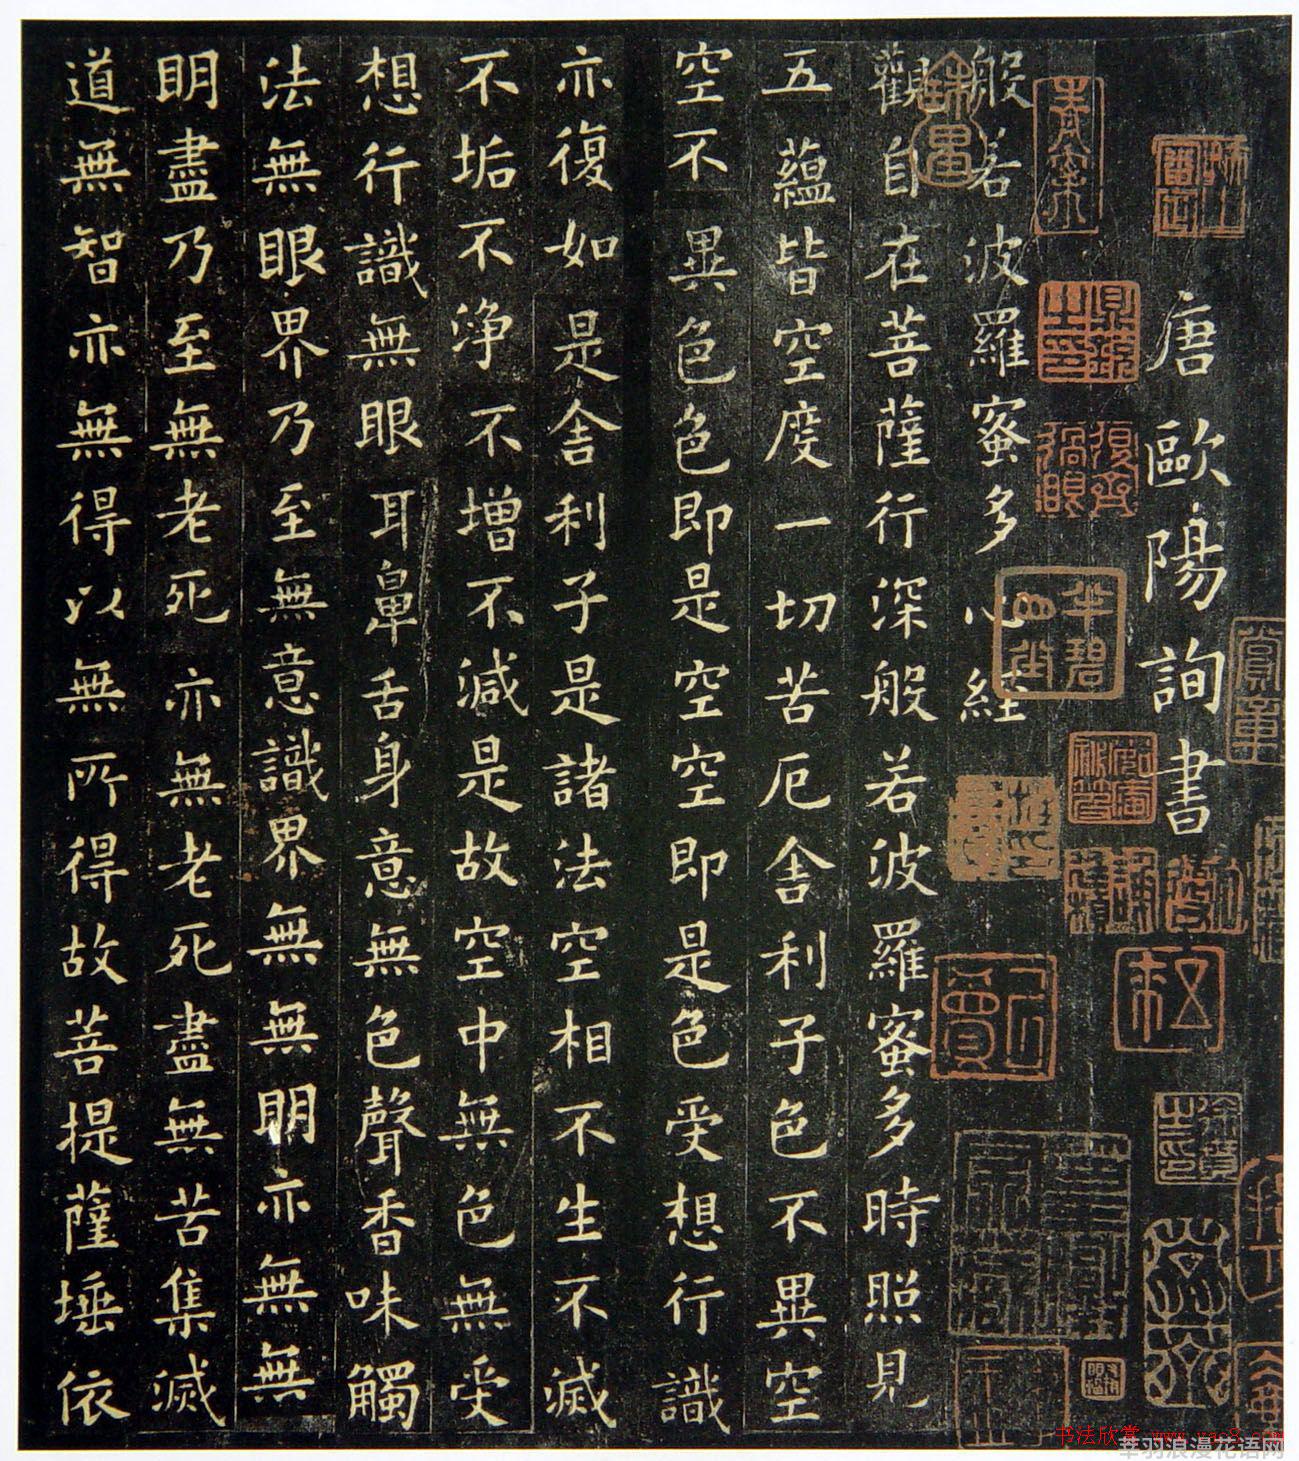 唐歐陽詢書
般若波羅蜜多心經
觀自在菩薩行深般若波羅蜜多時照見
五蘊皆空度一切苦厄舍利子色不異空
空不異色色即是空空即是色受想行識
亦復如是舍利子是諸法空相不生不滅
不垢不淨不增不減是故空中無色無受
想行識無眼耳鼻舌身意無色聲香味觸
法無眼界乃至無意識界無無明亦無無
明盡乃至無老死亦無老死盡無苦集滅
道無智亦無得以無所得故菩提薩埵依
书法欣赏 www.yac8.com
莘羽浪漫花语网